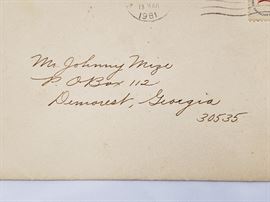 1981
Mr Johnny Mize
P. O Box 112
Demorest, Georgia
30535